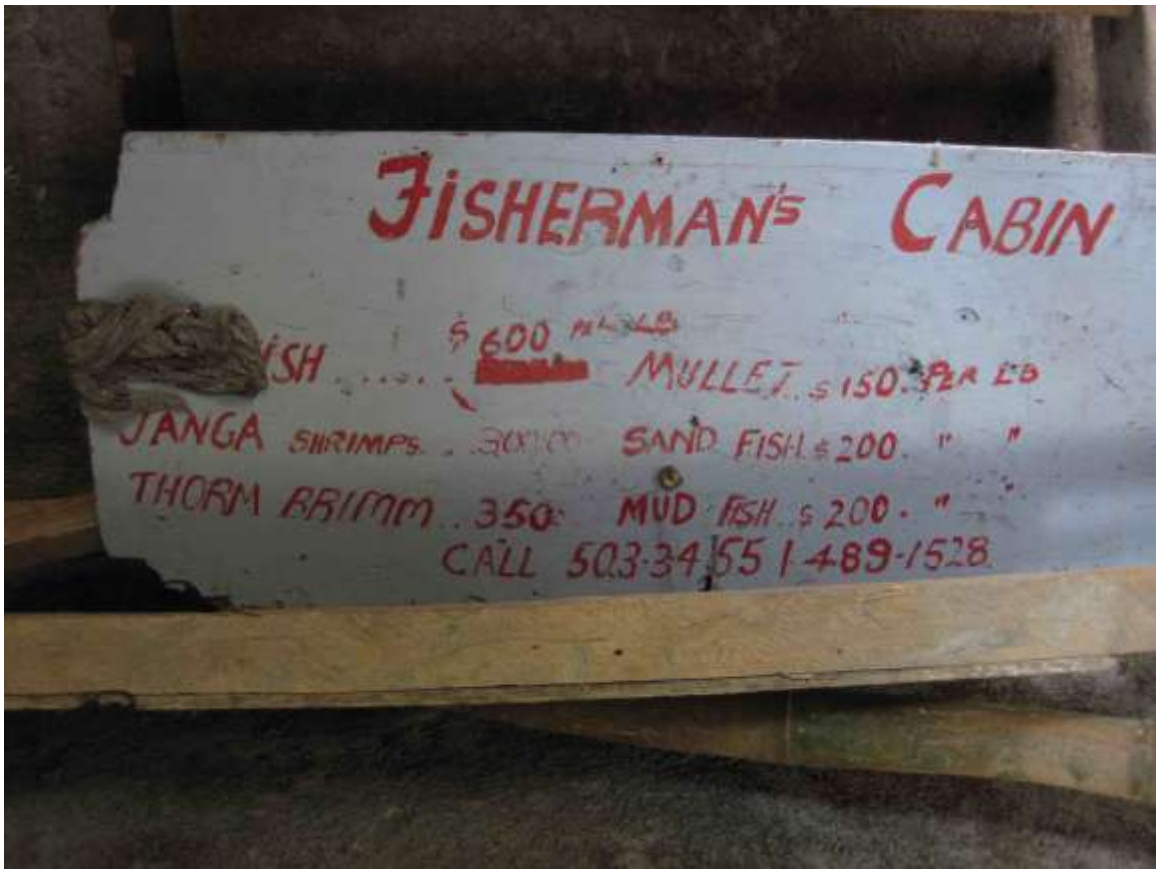 FISHERMAN'S CABIN
ISH ...... $600 PER LB MULLET.. $150. PER LB
JANGA SHRIMPS. . 300.00 SAND FISH. $200. " "
THORM BRIMM .. 350. MUD FISH .. $200. " "
CALL 503-3455 1-489-1528